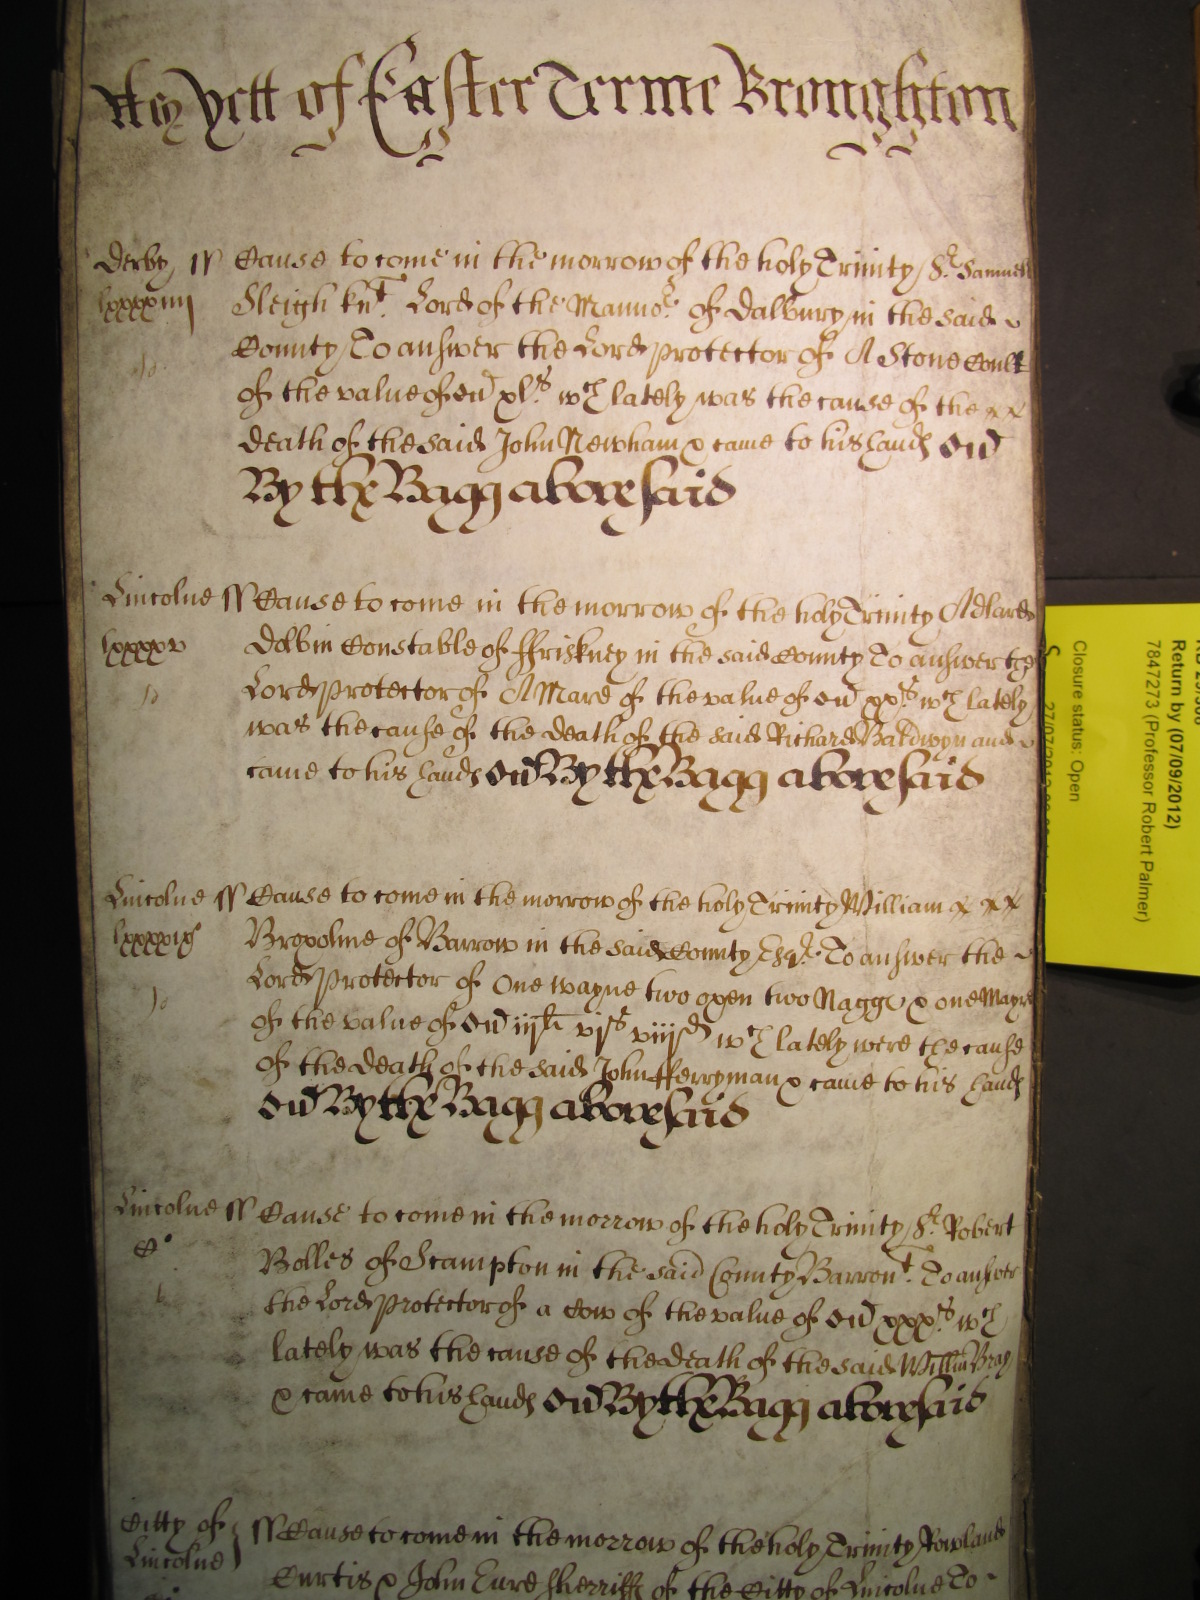 As yett of Easter Terme Broughton
Derby ss Cause to come in the morrow of the holy Trinity Sr. Samuel
lxxxxiiij Sleigh knt. Lord of the Mannor. of Dalbury in the said
County To answer the Lord Protector of A Stone Coult
of the value of xls. wch lately was the cause of the
death of the said John Newham & came to his hands
By the Bagg abovesaid
Lincolne ss Cause to come in the morrow of the holy Trinity Adlard
lxxxxv Dolbin Constable of ffriskney in the said County To answer the
Lord Protector of A Mare of the value of xxs. wch lately
was the cause of the death of the said Richard Baldwyn and
came to his hands By the Bagg abovesaid
Lincolne ss Cause to come in the morrow of the holy Trinity William
lxxxxvj Broxolme of Barrow in the said County Esqr. To answer the
Lord Protector of One wayne two oxen two Naggs & one Mayre
of the value of iijli vjs viijd wch lately were the cause
of the death of the said John fferryman & came to his hands
By the Bagg abovesaid
Lincolne ss Cause to come in the morrow of the holy Trinity Sr. Robert
C Bolles of Scampton in the said County Barront. To answer
the Lord Protector of a Cow of the value of xxxs. wch
lately was the cause of the death of the said Willm Bray
& came to his hands By the Bagg abovesaid
Citty of Lincolne ss Cause to come in the morrow of the holy Trinity Rowland
Curtis & John Lure sherriffs of the Citty of Lincolne To
Closure status: Open
27/07/2012
Return by (07/09/2012)
7847273 (Professor Robert Palmer)